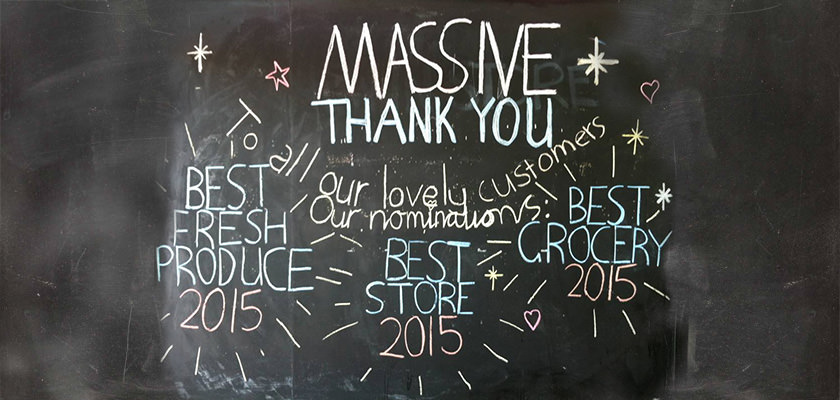 MASSIVE
THANK YOU
To all our lovely customers
Our nominations:
BEST
FRESH
PRODUCE
2015
BEST
STORE
2015
BEST
GROCERY
2015